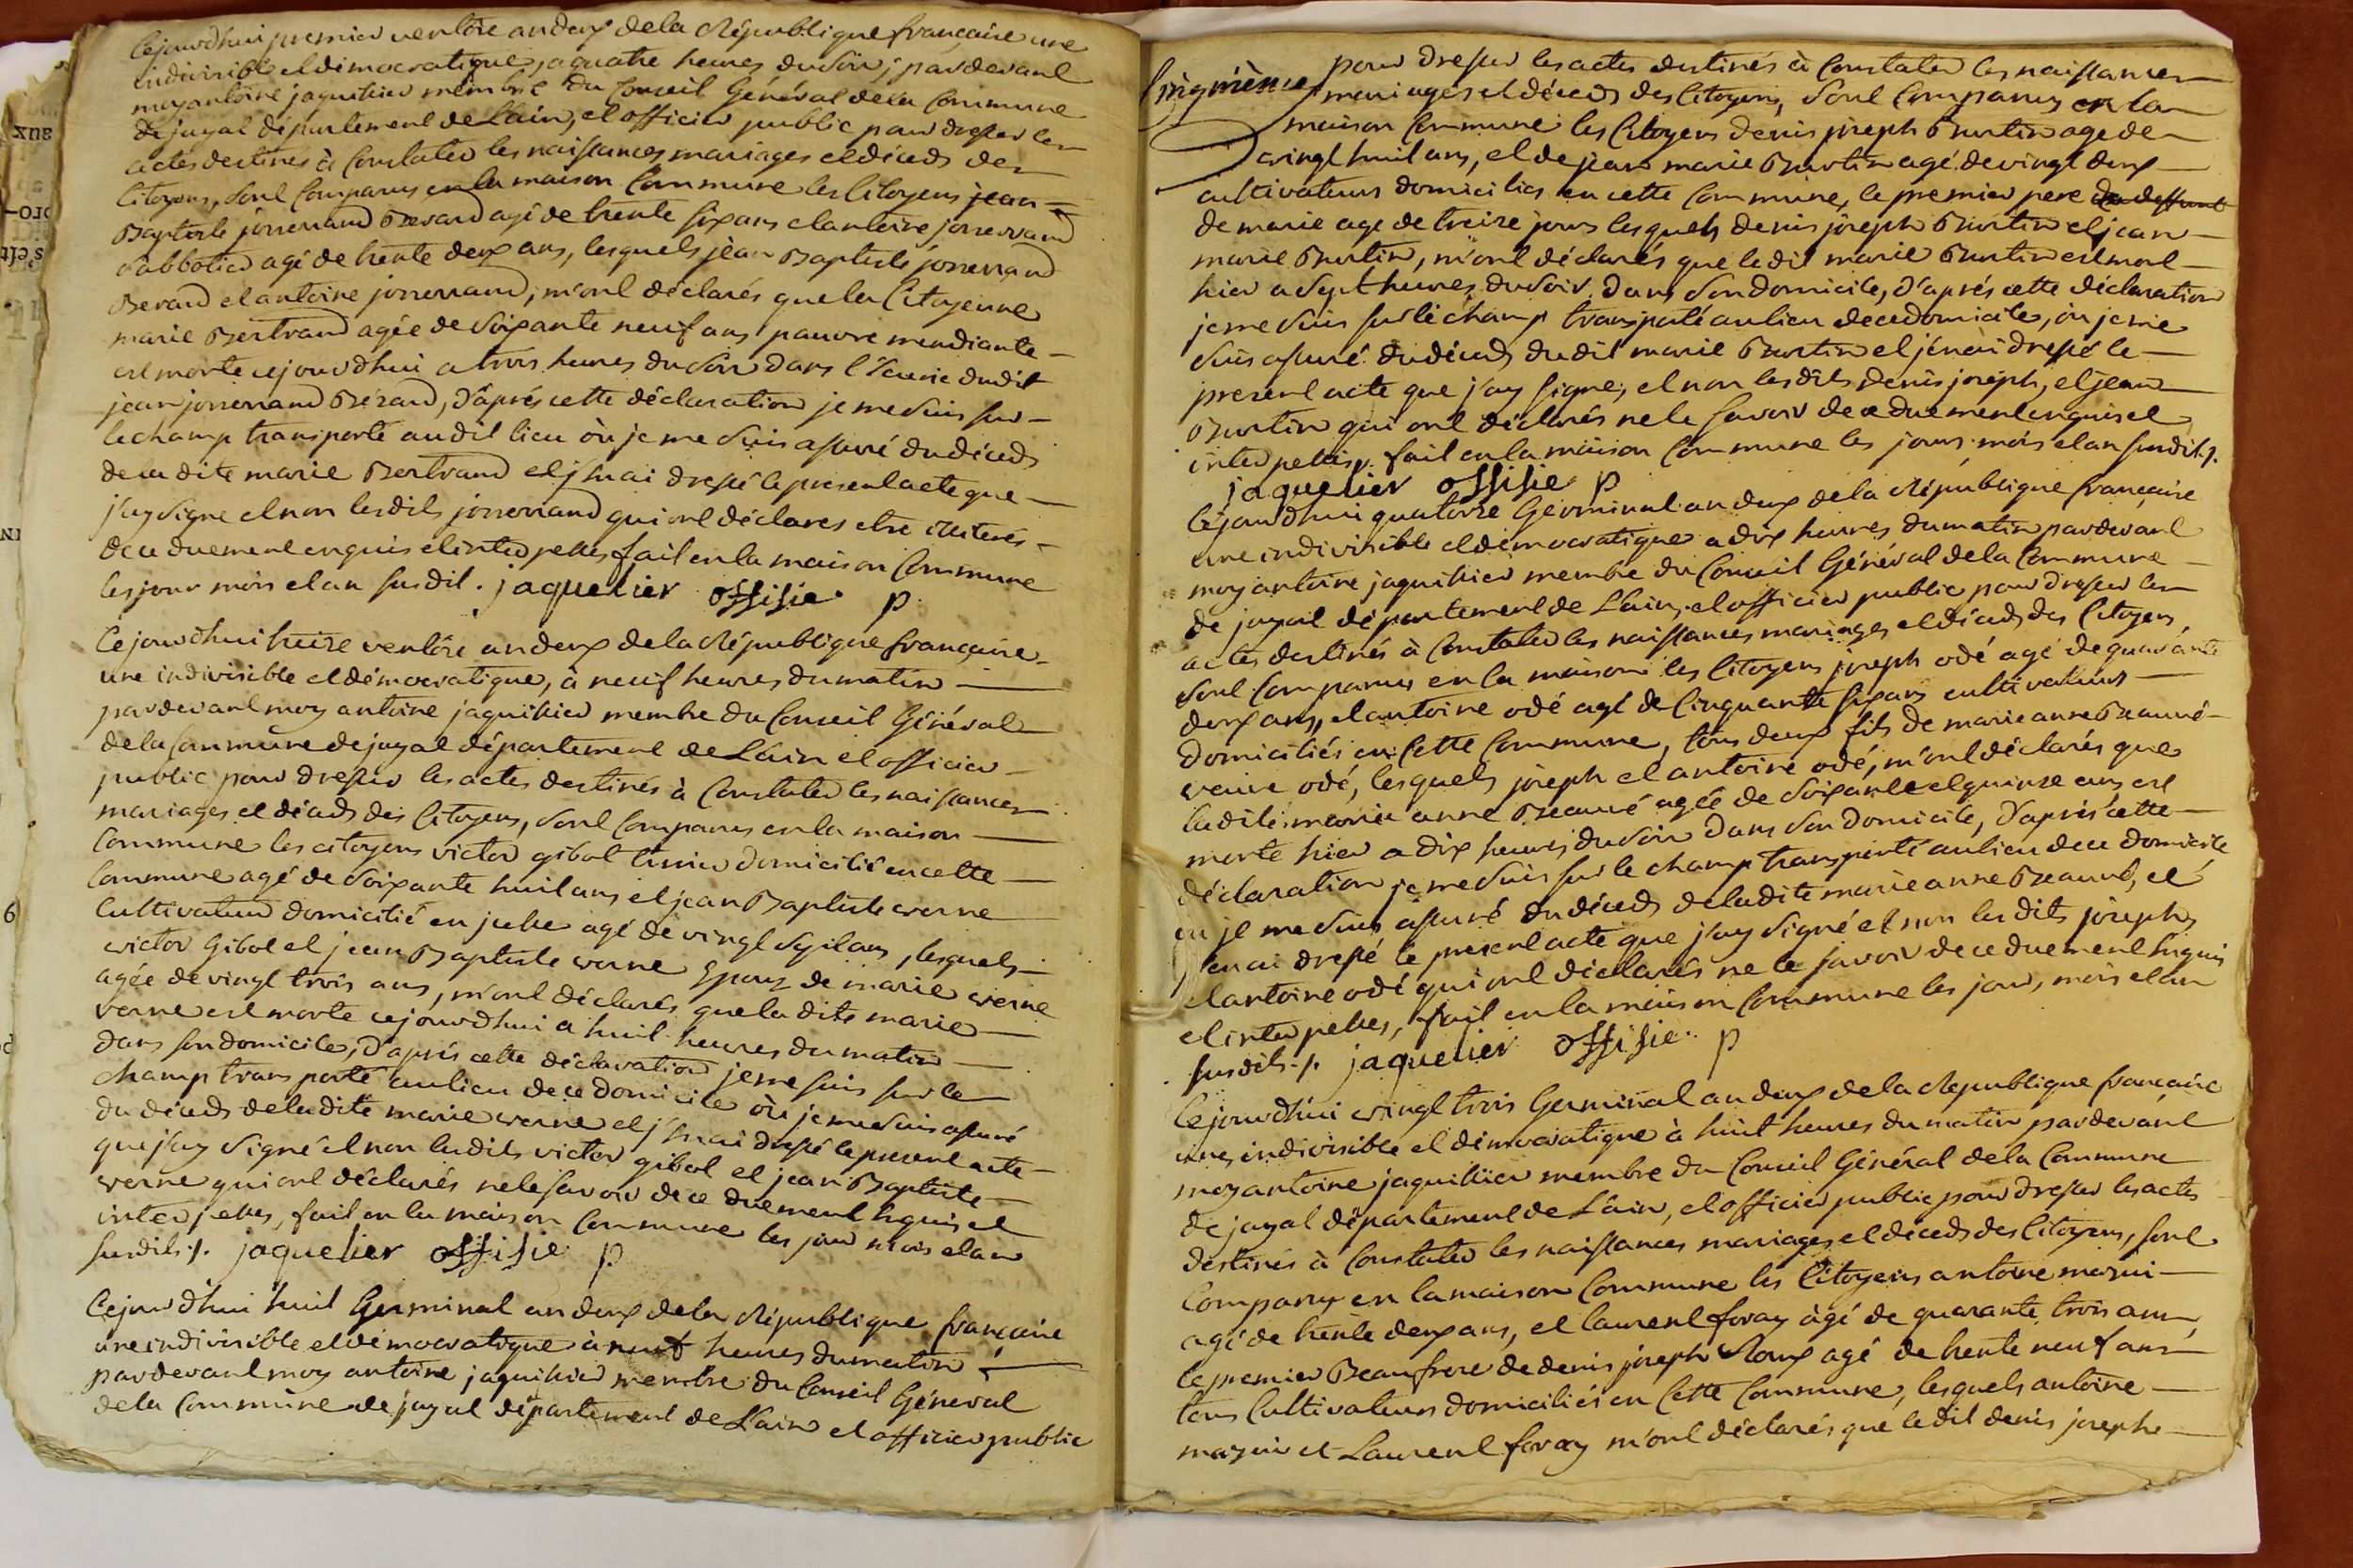 Cejourdhui premier ventôse an deux de la République française une
indivisible et démocratique, a quatre heures du soir, pardevant
moy antoine jaquitier membre du Conseil Général de la Commune
de jayat département de Lain, et officier public pour dresser les
actes destinés à Constater les naissances mariages et décéds des
Citoyens, sont Comparus en la maison Commune les Citoyens jean
Baptiste josserrand Berard agé de trente six ans et antoine josserrand
sabbotier agé de trente deux ans, lesquels jean Baptiste josserrand
Berard et antoine josserrand, m'ont déclarés que la Citoyenne
marie Bertrand agée de soixante neuf ans pauvre mendiante
est morte cejourdhui a trois heures du soir dans l'Ecurie dudit
jean josserrand Bérard, d'après cette déclaration je me suis sur
le champ transporté audit lieu où je me suis assuré du décéds
de la dite marie Bertrand et j'en ai dressé le présent acte que
j'ay signe et non lesdits josserrand qui ont déclarés etre illiterés
de ce duement enquis et interpellés, fait en la maison Commune
les jour mois et an susdit. jaquelier offisie p
Cejourdhui treize ventôse an deux de la République française
une indivisible et démocratique, à neuf heures du matin
pardevant moy antoine jaquitier membre du Conseil Général
de la Commune de jayat département de Lain et officier
public pour dresser les actes destinés à Constater les naissances
mariages et décéds des Citoyens, sont Comparus en la maison
Commune les citoyens victor gibot domicilié en cette
Commune agé de soixante huit ans et jean Baptiste verne
Cultivateur domicilié en agé de vingt sept ans, lesquels
victor Gibot et jean Baptiste verne Epoux de marie verne
agée de vingt trois ans, m'ont déclarés que la dite marie
verne est morte cejourdhui a huit heures du matin
dans son domicile, d'après cette déclaration je me suis sur le
champ transporté au lieu de ce domicile où je me suis assuré
du décéds de la dite marie verne et j'en ai dressé le present acte
que j'ay signé et non lesdits victor gibot et jean Baptiste
verne qui ont déclarés ne le savoir de ce duement Enquis et
interpellés, fait en la maison Commune les jour mois et an
susdits ./. jaquelier offisie p
Cejourdhui huit Germinal an deux de la République française
une indivisible et démocratique à neuf heures du matin
pardevant moy antoine jaquitier membre du Conseil Général
de la Commune de jayat département de Lain et officier public
Cinquième
pour dresser les actes destinés à Constater les naissances
mariages et décéds des Citoyens, sont Comparus en la
maison Commune les Citoyens denis joseph Burtin agé de
vingt huit ans, et de jean marie Burtin agé de vingt deux
cultivateurs domiciliés en cette Commune, le premier pere du deffunt
de marie age de treize jours lesquels denis joseph Burtin et jean
marie Burtin, m'ont déclarés que ledit marie Burtin est mort
hier a sept heures du soir dans son domicile, d'après cette déclaration
je me suis sur le champ transporté au lieu de ce domicile, ou je me
suis assuré du décéds dudit marie Burtin et j'en ai dressé le
present acte que j'ay signe, et non lesdits denis joseph, et jean
Burtin qui ont déclarés ne le savoir de ce duement enquis et
interpellés, fait en la maison Commune les jours mois et an susdit ./.
jaquelier offisie p
Cejourdhui quatorze Germinal an deux de la République française
une indivisible et démocratique a dix heures du matin pardevant
moy antoine jaquitier membre du Conseil Général de la Commune
de jayat département de Lain, et officier public pour dresser les
actes destinés à Constater les naissances mariages et décéds des Citoyens,
sont Comparus en la maison les Citoyens joseph odé agé de quarante
deux ans, et antoine odé agé de Cinquante six ans cultivateurs
domiciliés en Cette Commune, tous deux fils de marie anne Beauné
veuve odé, lesquels joseph et antoine odé, m'ont déclarés que
ladite marie anne Beauné agée de soixante et quinze ans est
morte hier a dix heures du soir dans son domicile, d'après cette
déclaration je me suis sur le champ transporté au lieu de ce domicile
ou je me suis assuré du décéds de ladite marie anne Beauné, et
j'en ai dressé le present acte que j'ay signé et non lesdits joseph
et antoine odé qui ont déclarés ne le savoir de ce duement Enquis
et interpellés, fait en la maison Commune les jour, mois et an
susdits ./. jaquelier offisie p
Cejourdhui vingt trois Germinal an deux de la République francaise
une indivisible et démocratique à huit heures du matin pardevant
moy antoine jaquitier membre du Conseil Général de la Commune
de jayat département de Lain, et officier public pour dresser les actes
destinés à Constater les naissances mariages et décéds des Citoyens, sont
Comparus en la maison Commune les Citoyens antoine mazui
agé de trente deux ans, et laurent foray agé de quarante trois ans,
le premier Beaufrere de denis joseph Roux agé de trente neuf ans
tous Cultivateurs domiciliés en Cette Commune, lesquels antoine
mazui et Laurent foray m'ont déclarés que ledit denis joseph